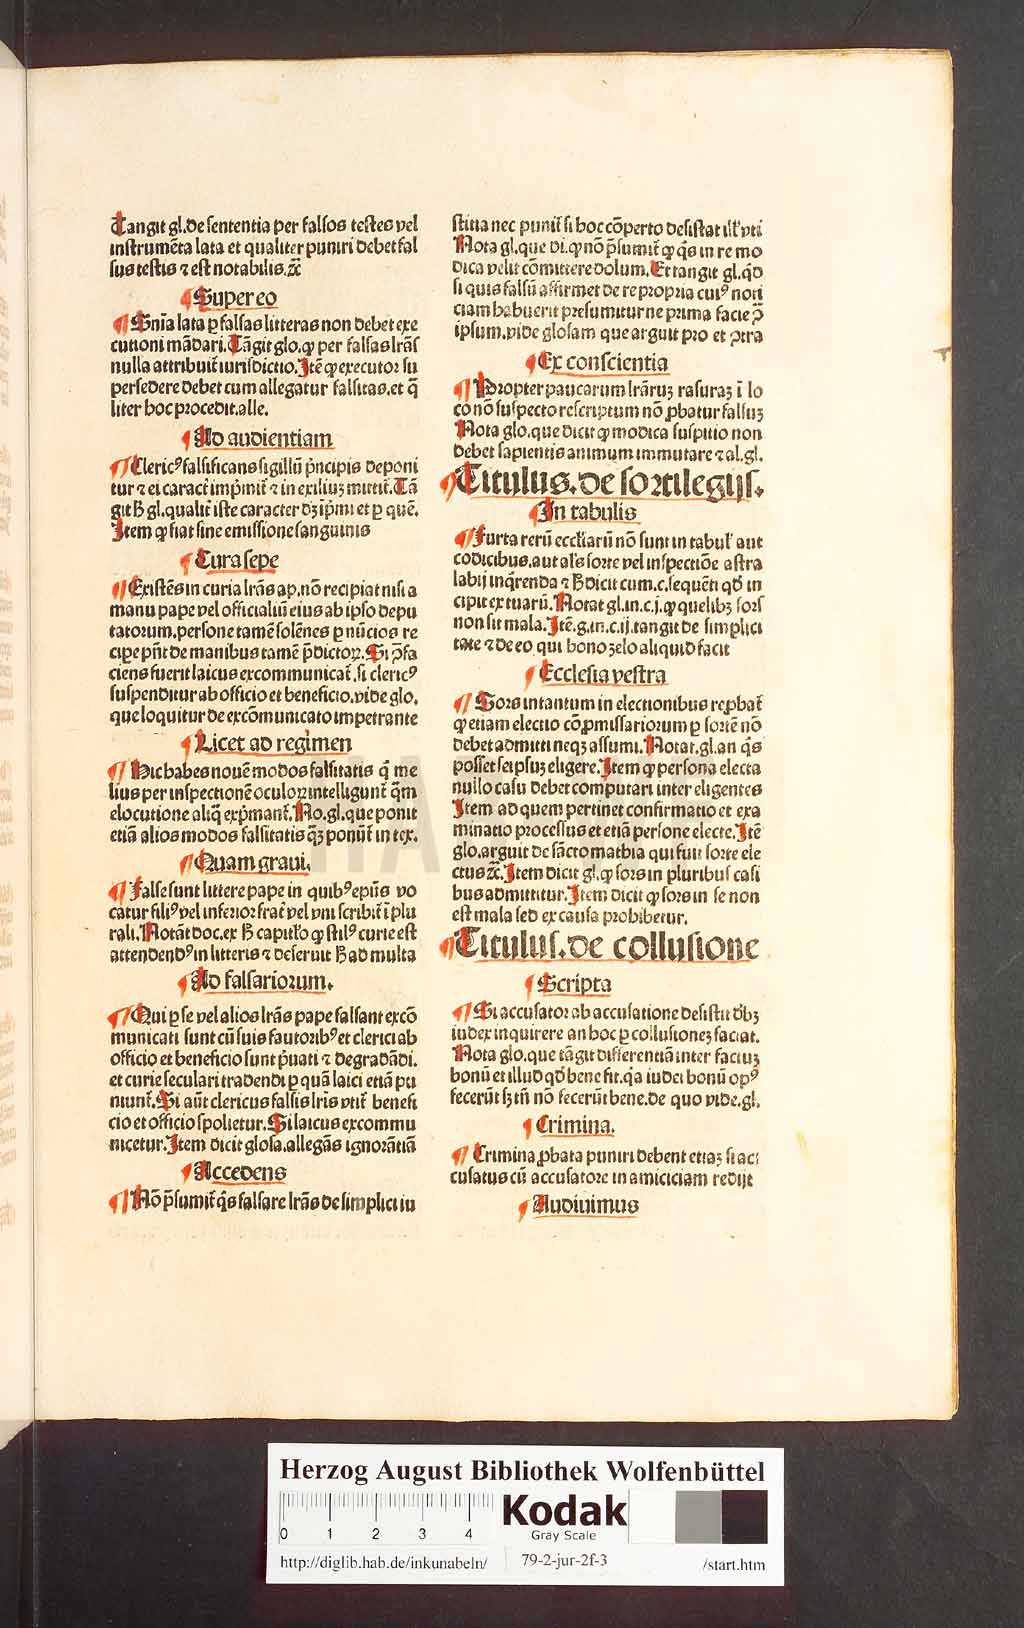 Tangit gl. de sententia per falsos testes vel
instrumēta lata et qualiter puniri debet fal
sus testis ⁊ est notabilis. ⁊c̄
¶ Super eo
¶ Snīa lata ꝑ falsas litteras non debet exe
cutioni mādari. Tāgit glo. ꝙ per falsas lrās
nulla attribuit̄ iurisdictio. Itē ꝙ executor su
persedere debet cum allegatur falsitas. et q̄
liter hoc procedit. alle.
¶ Ad audientiam
¶ Clericꝰ falsificans sigillū pͥncipis deponi
tur ⁊ ei caract̄ impͥmit̄ ⁊ in exiliuꝫ mittit̄. Tā
git ꝧ gl. qualit̄ iste caracter dꝫ ipͥmi et ꝑ quē.
Item ꝙ fiat sine emissione sanguinis
¶ Cura sepe
¶ Existēs in curia lrās ap. nō recipiat nisi a
manu pape vel officialiū eius ab ipso depu
tatorum. persone tamē solēnes ꝑ nūcios re
cipe pn̄t de manibus tamē p̄dictoꝝ. Si p̄fa
ciens fuerit laicus excommunicat̄. si clericꝰ
suspenditur ab officio et beneficio. vide glo.
que loquitur de excōmunicato impetrante
¶ Licet ad regimen
¶ Hic habes nouē modos falsitatis q̄ me
lius per inspectionē oculoꝝ intelligunt̄ q̄m
elocutione aliq̄ expͥmant̄. No. gl. que ponit
etiā alios modos falsitatis q̄ꝫ ponūt̄ in tex.
¶ Quam graui.
¶ False sunt littere pape in quibꝰ ep̄us vo
catur filiꝰ vel inferior frat̄ vel vni scribit̄ ī plu
rali. Notāt doc. ex ꝧ capitl̓o ꝙ stilꝰ curie est
attendendꝰ in litteris ⁊ deseruit ꝧ ad multa
¶ Ad falsariorum.
¶ Qui ꝑ se vel alios lrās pape falsant excō
municati sunt cū suis fautoribꝰ et clerici ab
officio et beneficio sunt pͥuati ⁊ degradādi.
et curie seculari tradendi ꝑ quā laici etiā pu
niunt̄. Si aūt clericus falsis lris vtit̄ benefi
cio et officio spolietur. Si laicus excommu
nicetur. Item dicit glosa. allegās ignorātiā
¶ Accedens
¶ Nō p̄sumit̄ qͥs falsare lrās de simplici iu
stitia nec punit̄ si hoc cōperto desistat ill̓ vti
Nota gl. que di. ꝙ nō p̄sumit̄ ꝙ qͥs in re mo
dica velit cōmittere dolum. Et tangit gl. qͦd
si quis falsū affirmet de re propria cuiꝰ noti
ciam habuerit presumitur ne prima facie ꝯ̄
ipsum. vide glosam que arguit pro et ꝯtra
¶ Ex conscientia
¶ Propter paucarum lrāruꝫ rasuraꝫ ī lo
co nō suspecto rescriptum nō ꝓbatur falsuꝫ
Nota glo. que dicit ꝙ modica suspitio non
debet sapientis animum immutare ⁊ al. gl.
¶ Titulus. de sortilegijs.
¶ In tabulis
¶ Furta rerū eccl̓iarū nō sunt in tabul̓ aut
codicibus. aut al̓s sorte vel inspectiōe astra
labij inqͥrenda ⁊ ꝧ dicit cum. c. sequēti qd̓ in
cipit ex tuarū. Notat gl. in. c. j. ꝙ quelibꝫ sors
non sit mala. Itē. g. in. c. ij. tangit de simplici
tate ⁊ de eo qui bono zelo aliquid facit
¶ Ecclesia vestra
¶ Sors intantum in electionibus repbat̄
ꝙ etiam electio cōꝓmissariorum ꝑ sortē nō
debet admitti neqꝫ assumi. Notat. gl. an qͥs
posset seipsuꝫ eligere. Item ꝙ persona electa
nullo casu debet computari inter eligentes
Item ad quem pertinet confirmatio et exa
minatio processus et etiā persone electe. Itē
glo. arguit de sācto mathia qui fuit sorte ele
ctus ⁊c̄. Item dicit gl. ꝙ sors in pluribus casi
bus admittitur. Item dicit ꝙ sors in se non
est mala sed ex causa prohibetur.
¶ Titulus. de collusione
¶ Scripta
¶ Si accusator ab accusatione desistit dꝫ
iudex inquirere an hoc ꝑ collusioneꝫ faciat.
Nota glo. que tāgit differentiā inter factuꝫ
bonū et illud qd̓ bene fit. qͣ iudei bonū opꝰ
fecerūt sꝫ tn̄ nō fecerūt bene. de quo vide. gl.
¶ Crimina.
¶ Crimina ꝓbata puniri debent etiaꝫ si ac
cusatus cū accusatore in amiciciam redijt
¶ Audiuimus
HAB
Herzog August Bibliothek Wolfenbüttel
0 1 2 3 4
Kodak
Gray Scale
http://diglib.hab.de/inkunabeln/ 79-2-jur-2f-3 /start.htm